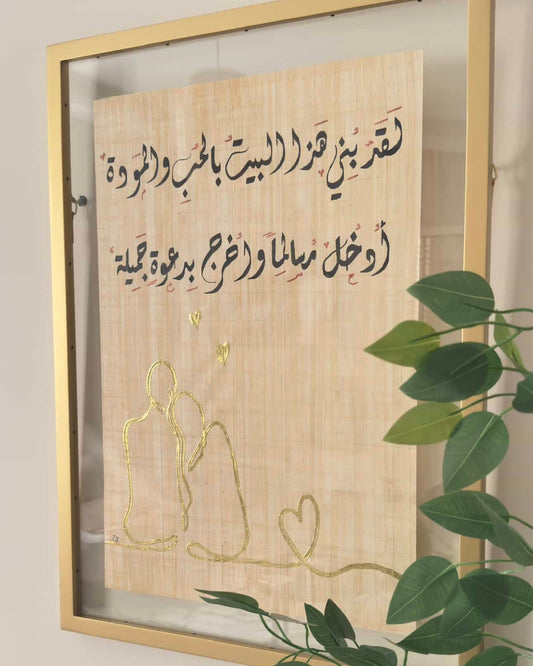 لَقَدْ بُنِيَ هَذَا البيتُ بالحُبِ والمَوَدة
أُدْخُل مُسالِماً واخرج بِدعوةٍ جَمِيلة